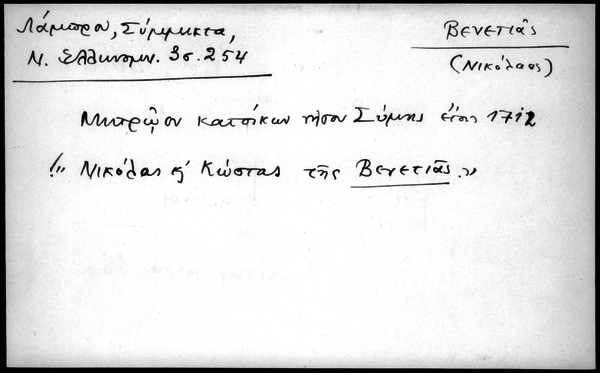 Λάμπρου, Σύμμικτα,
Ν. Ελληνομν. 3σ. 254
Βενετιᾶς
(Νικόλαος)
Μητρῷον κατοίκων νήσου Σύμης ἔτους 1712
"Νικόλας ϗ Κώστας τῆς Βενετιᾶς."